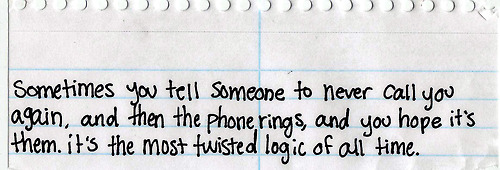 Sometimes you tell someone to never call you
again, and then the phone rings, and you hope it's
them. it's the most twisted logic of all time.